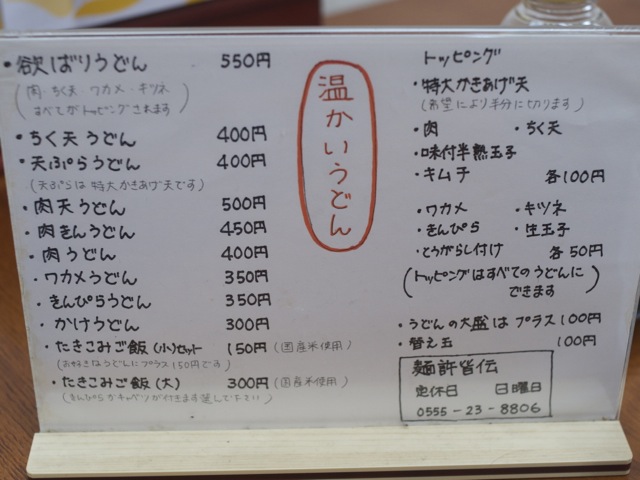 ・欲ばりうどん 550円
(肉・ちく天・ワカメ・キツネ
すべてがトッピングされます)
・ちく天うどん 400円
・天ぷらうどん 400円
(天ぷらは特大かきあげ天です)
・肉天うどん 500円
・肉きんうどん 450円
・肉うどん 400円
・ワカメうどん 350円
・きんぴらうどん 350円
・かけうどん 300円
・たきこみご飯(小)セット 150円(国産米使用)
(お好きなうどんにプラス150円です)
・たきこみご飯(大) 300円(国産米使用)
温かいうどん
トッピング
・特大かきあげ天
(希望により半分に切ります)
・肉 ・ちく天
・味付半熟玉子
・キムチ 各100円
・ワカメ ・キツネ
・きんぴら ・生玉子
・とうがらし付け 各50円
(トッピングはすべてのうどんに
できます)
・うどんの大盛はプラス100円
・替え玉 100円
麺許皆伝
定休日 日曜日
0555-23-8806